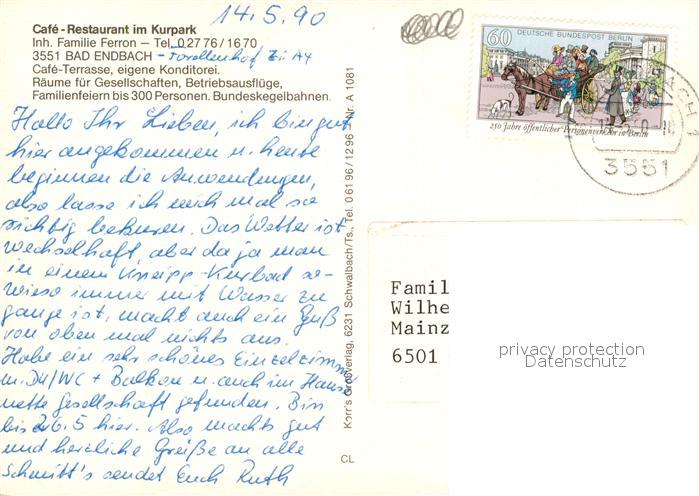 14.5.90
Café-Restaurant im Kurpark
Inh. Familie Ferron – Tel. 0 27 76 / 16 70
3551 BAD ENDBACH - Forellenhof Zi A4
Café-Terrasse, eigene Konditorei.
Räume für Gesellschaften, Betriebsausflüge,
Familienfeiern bis 300 Personen. Bundeskegelbahnen.
Hallo Ihr Lieben, ich bin gut
hier angekommen u. heute
beginnen die Anwendungen,
also lasse ich mich mal so
richtig bekuren. Das Wetter ist
wechselhaft, aber da ja man
in einem Kneipp-Kurbad so-
wieso immer mit Wasser zu
gange ist, macht auch ein Guß
von oben mal nichts aus.
Habe ein sehr schönes Einzelzimmer
m. DU/WC + Balkon u. auch im Hause
nette Gesellschaft gefunden. Bin
bis 26.5 hier. Also machts gut
und herzliche Grüße an alle
Schmitt's sendet Euch Ruth
Korr's Großverlag, 6231 Schwalbach/Ts., Tel. 0 61 96 / 12 96 Nr. A 1081
CL
60 DEUTSCHE BUNDESPOST BERLIN
250 Jahre öffentlicher Personenverkehr in Berlin
3551
Famil
Wilhe
Mainz
6501
privacy protection
Datenschutz